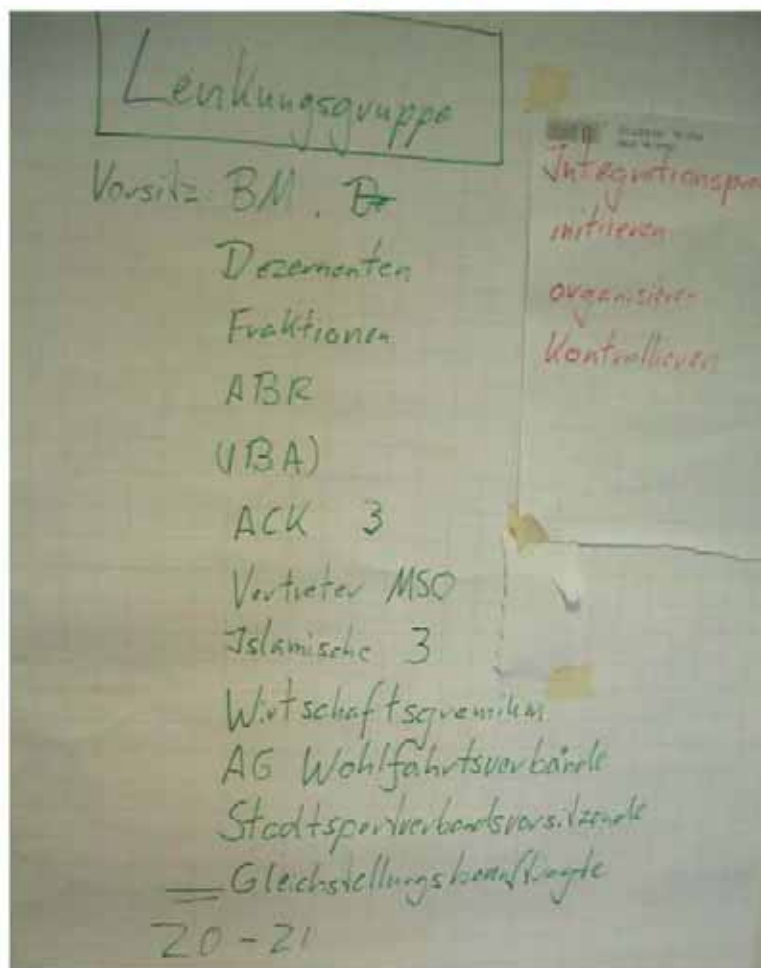 Lenkungsgruppe
Vorsitz: BM.
Dezernenten
Fraktionen
ABR
(IBA)
ACK 3
Vertreter MSO
Islamische 3
Wirtschaftsgremium
AG Wohlfahrtsverbände
Stadtsportverbandsvorsitzende
Gleichstellungsbeauftragte
20-21
initiieren
organisieren
Kontrollieren